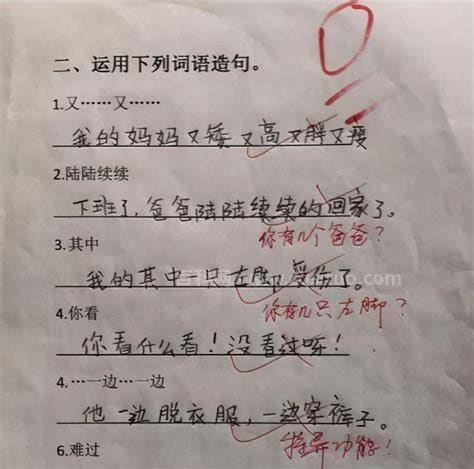 0
二、运用下列词语造句。
1.又……又……
我的妈妈又矮又高又胖又瘦
2.陆陆续续
下班了，爸爸陆陆续续的回家了。
你有几个爸爸？
3.其中
我的其中一只左脚受伤了。
你有几只左脚？
4.你看
你看什么看！没看过呀！
4.…一边…一边
他一边脱衣服，一边穿裤子。
特异功能！
6.难过